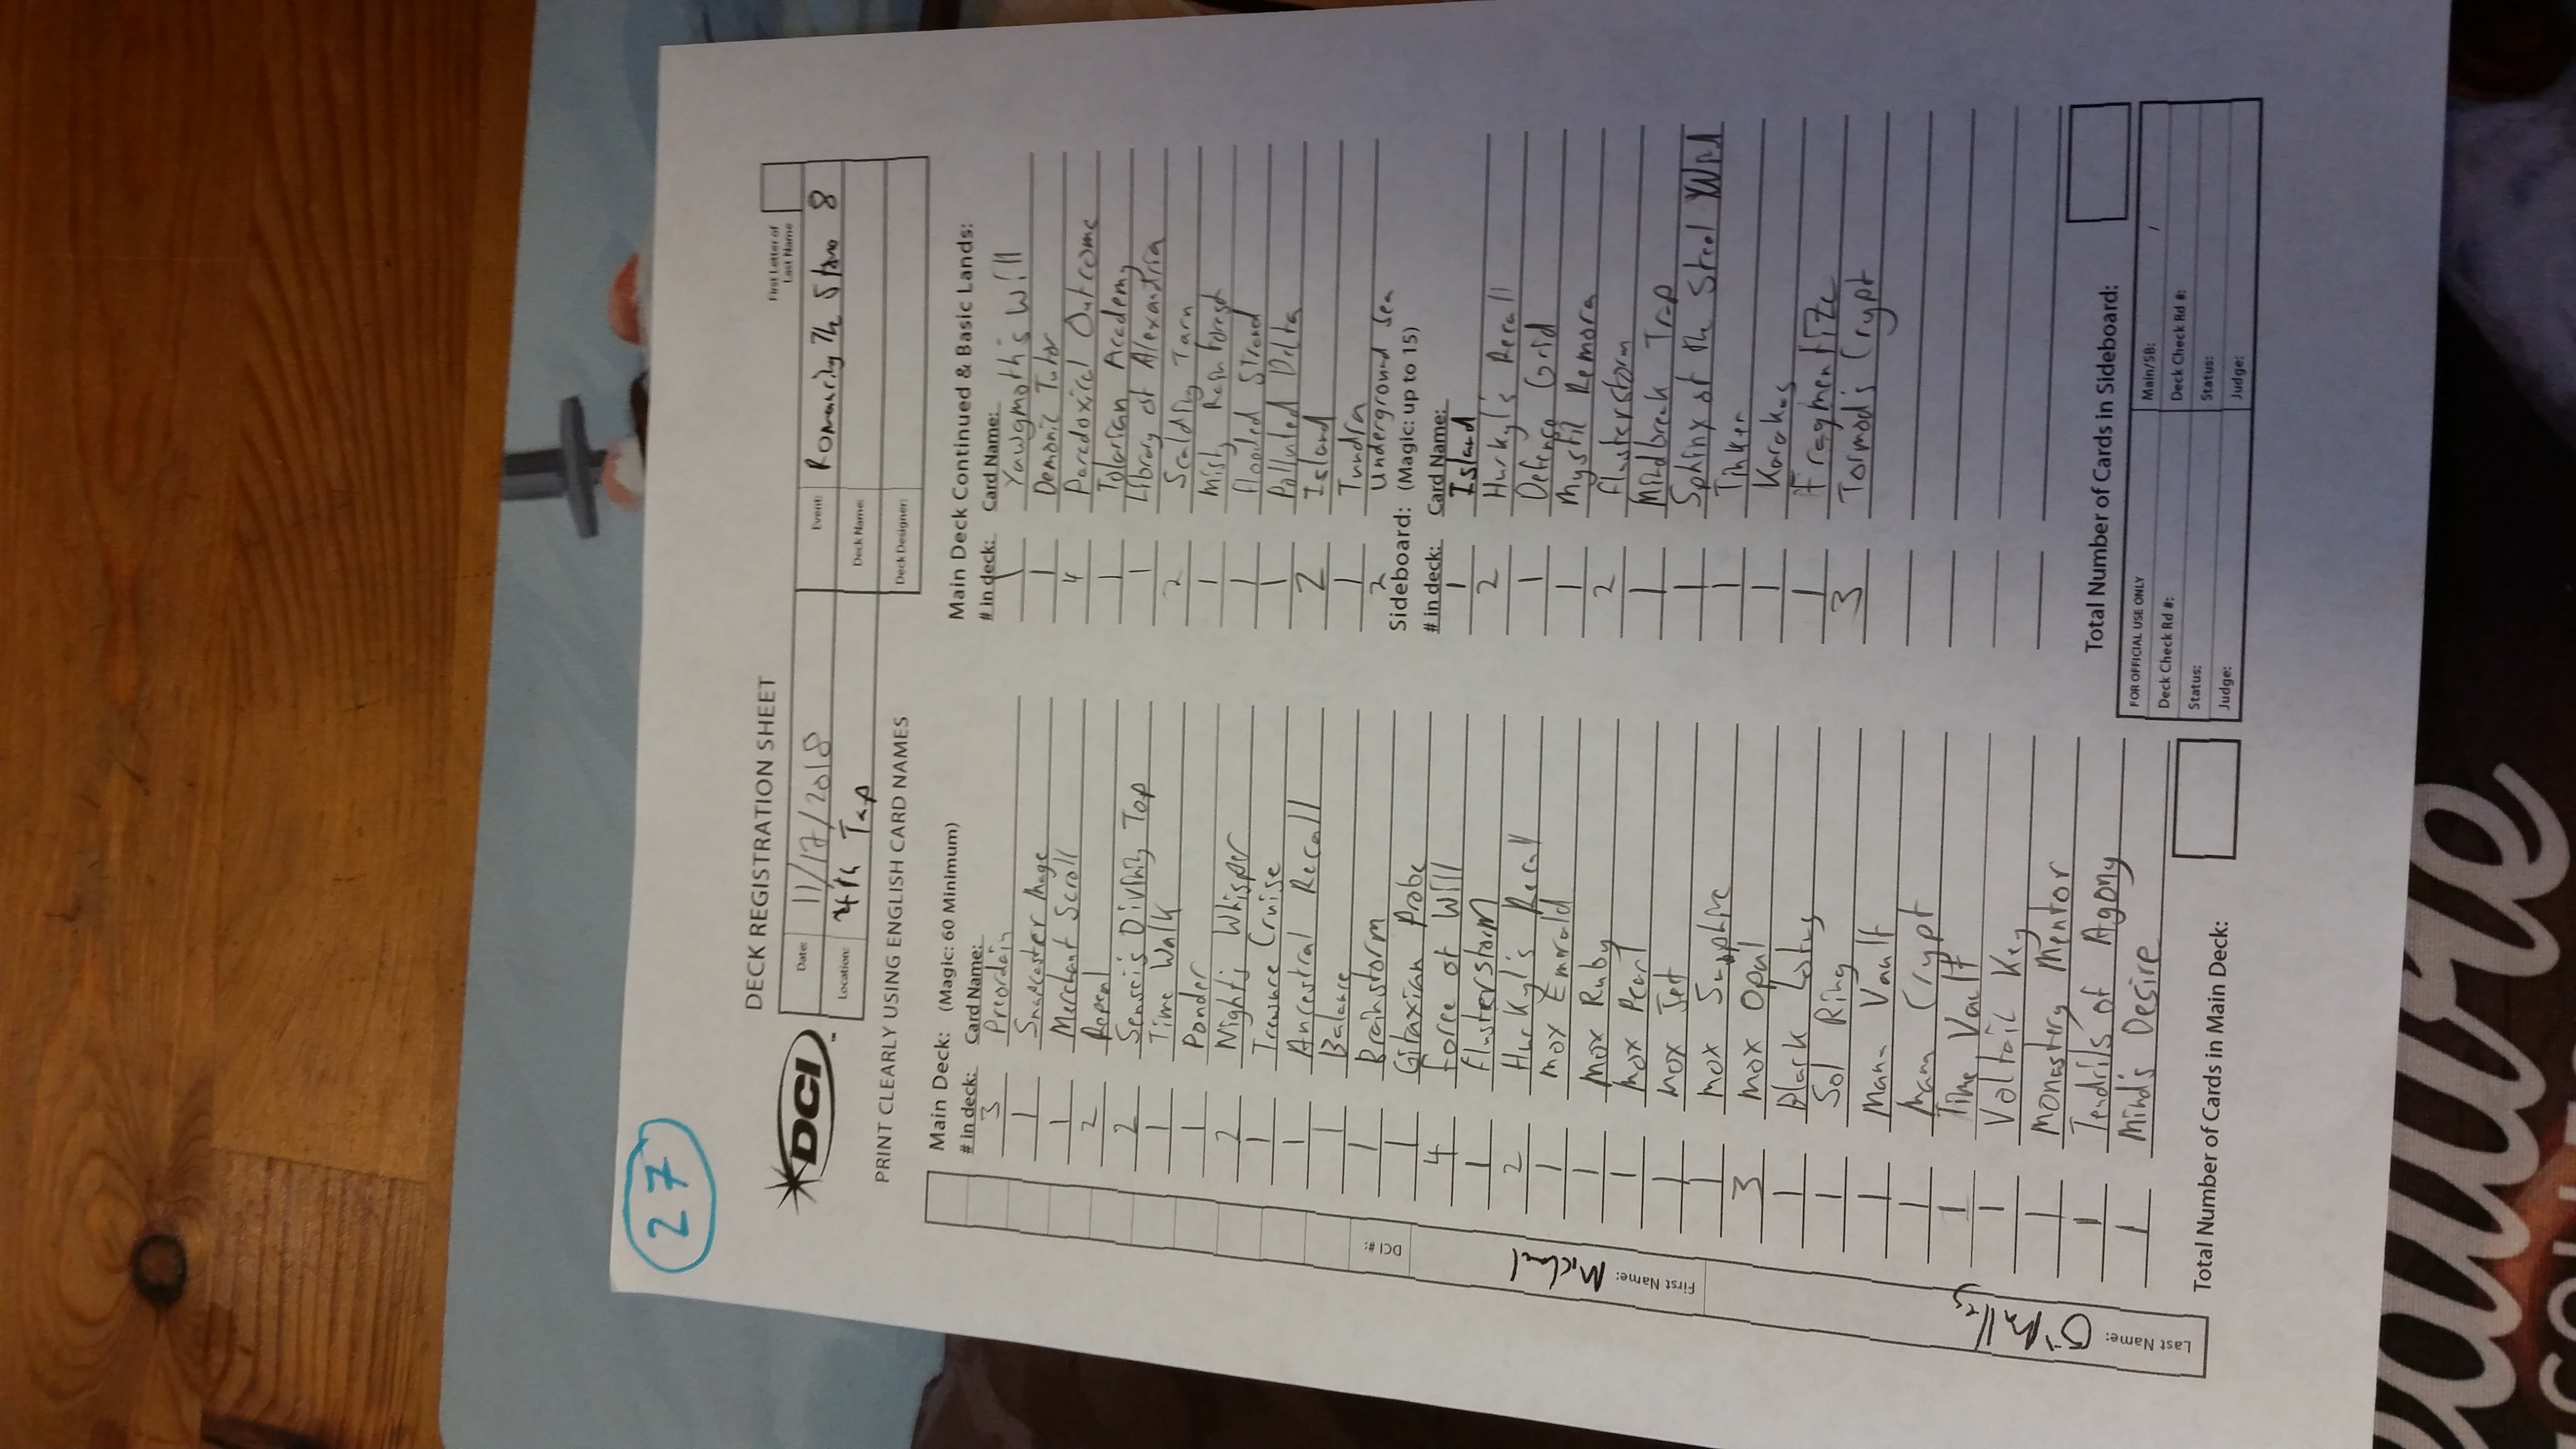 27
DECK REGISTRATION SHEET
First Letter of
Last Name
DCI
Date: 11/17/2018
Event: Romancing The Stone 8
Location: 4th Tap
Deck Name:
Deck Designer:
PRINT CLEARLY USING ENGLISH CARD NAMES
Main Deck: (Magic: 60 Minimum)
# in deck: Card Name:
3 Preordain
1 Snapcaster Mage
1 Merchant Scroll
2 Repeal
2 Sensei's Divining Top
1 Time Walk
1 Ponder
2 Night's Whisper
1 Treasure Cruise
1 Ancestral Recall
1 Balance
1 Brainstorm
1 Gitaxian Probe
4 Force of Will
1 Flusterstorm
2 Hurkyl's Recall
1 Mox Emerald
1 Mox Ruby
1 Mox Pearl
1 Mox Jet
1 Mox Sapphire
3 Mox Opal
1 Black Lotus
1 Sol Ring
1 Mana Vault
1 Mana Crypt
1 Time Vault
1 Voltaic Key
1 Monastery Mentor
1 Tendrils of Agony
1 Mind's Desire
Total Number of Cards in Main Deck:
Main Deck Continued & Basic Lands:
# in deck: Card Name:
1 Yawgmoth's Will
1 Demonic Tutor
4 Paradoxical Outcome
1 Tolarian Academy
1 Library of Alexandria
2 Scalding Tarn
1 Misty Rainforest
1 Flooded Strand
1 Polluted Delta
2 Island
1 Tundra
2 Underground Sea
Sideboard: (Magic: up to 15)
# in deck: Card Name:
1 Island
2 Hurkyl's Recall
1 Defense Grid
1 Mystic Remora
2 Flusterstorm
1 Mindbreak Trap
1 Sphinx of the Steel Wind
1 Tinker
1 Karakas
1 Fragmentize
3 Tormod's Crypt
Total Number of Cards in Sideboard:
FOR OFFICIAL USE ONLY
Main/SB: /
Deck Check Rd #:
Deck Check Rd #:
Status:
Status:
Judge:
Judge:
DCI #:
First Name: Michael
Last Name: